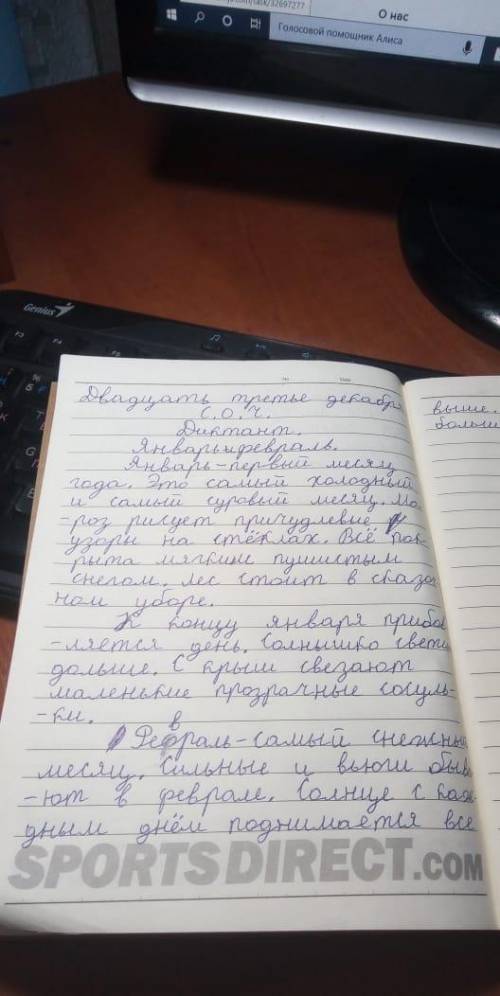 32697277
О нас
Голосовой помощник Алиса
Genius
Двадцать третье декабр
С.О.Ч.
Диктант.
Январь и февраль.
Январь - первый месяц
года. Это самый холодный
и самый суровый месяц. Мо
-роз рисует причудлевые
узоры на стёклах. Всё пок
рыта мягким пушистым
снегом. Лес стоит в сказоч
ном уборе.
К концу января прибав
-ляется день. Солнышко свети
дольше. С крыш свезают
маленькие прозрачные сосуль-
-ки.
в
Фефраль - самый снежный
месяц. Сильные и вьюги быва
-ют в феврале. Солнце с каж
дным днём поднимается всё
выше.
больш
SPORTSDIRECT.COM